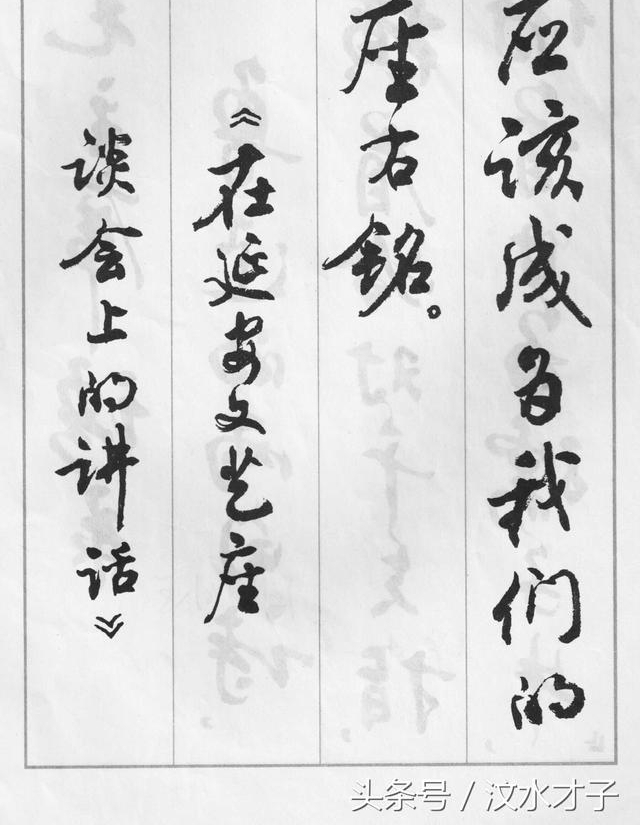 应该成为我们的
座右铭。
《在延安文艺座
谈会上的讲话》
头条号 / 汶水才子